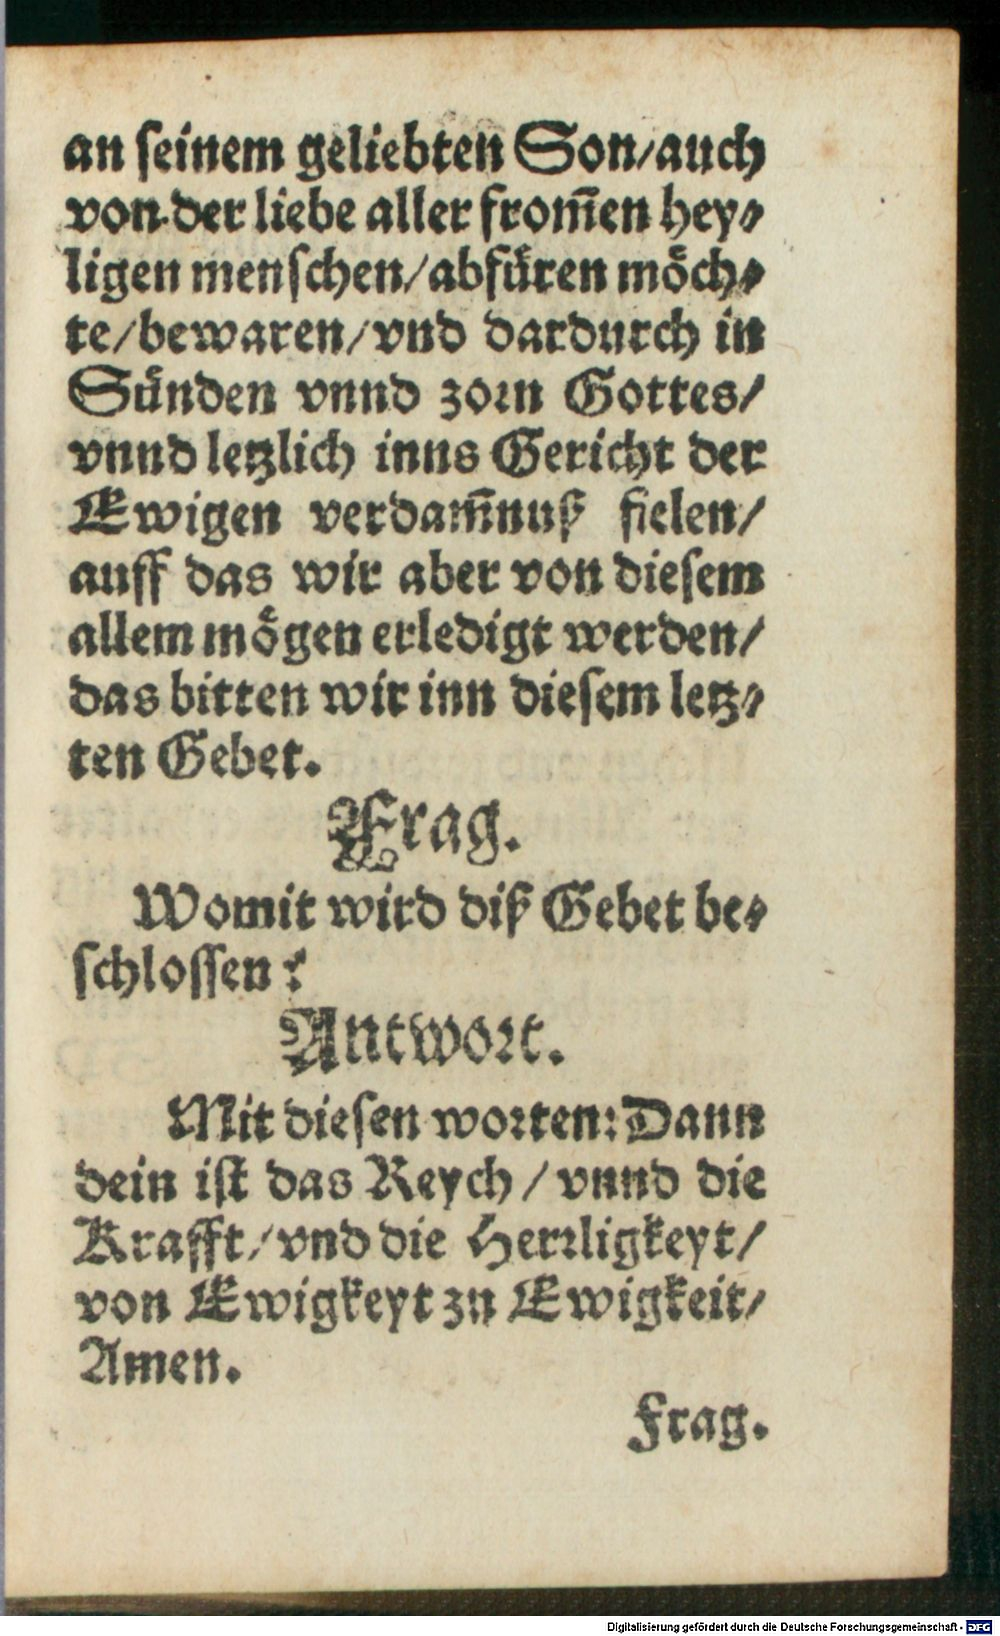 an ſeinem geliebten Son/auch
von der liebe aller from̄en hey⸗
ligen menſchen/abfuͤren moͤch⸗
te/bewaren/vnd dardurch in
Suͤnden vnnd zoꝛn Gottes/
vnnd letzlich inns Gericht der
Ewigen verdam̄nuß fielen/
auff das wir aber von dieſem
allem moͤgen erledigt werden/
das bitten wir inn dieſem letz⸗
ten Gebet.
Frag.
Womit wird diß Gebet be⸗
ſchloſſen?
Antwoꝛt.
Mit dieſen woꝛten: Dann
dein iſt das Reych/vnnd die
Krafft/vnd die Herꝛligkeyt/
von Ewigkeyt zu Ewigkeit/
Amen.
Frag.
Digitalisierung gefördert durch die Deutsche Forschungsgemeinschaft - DFG